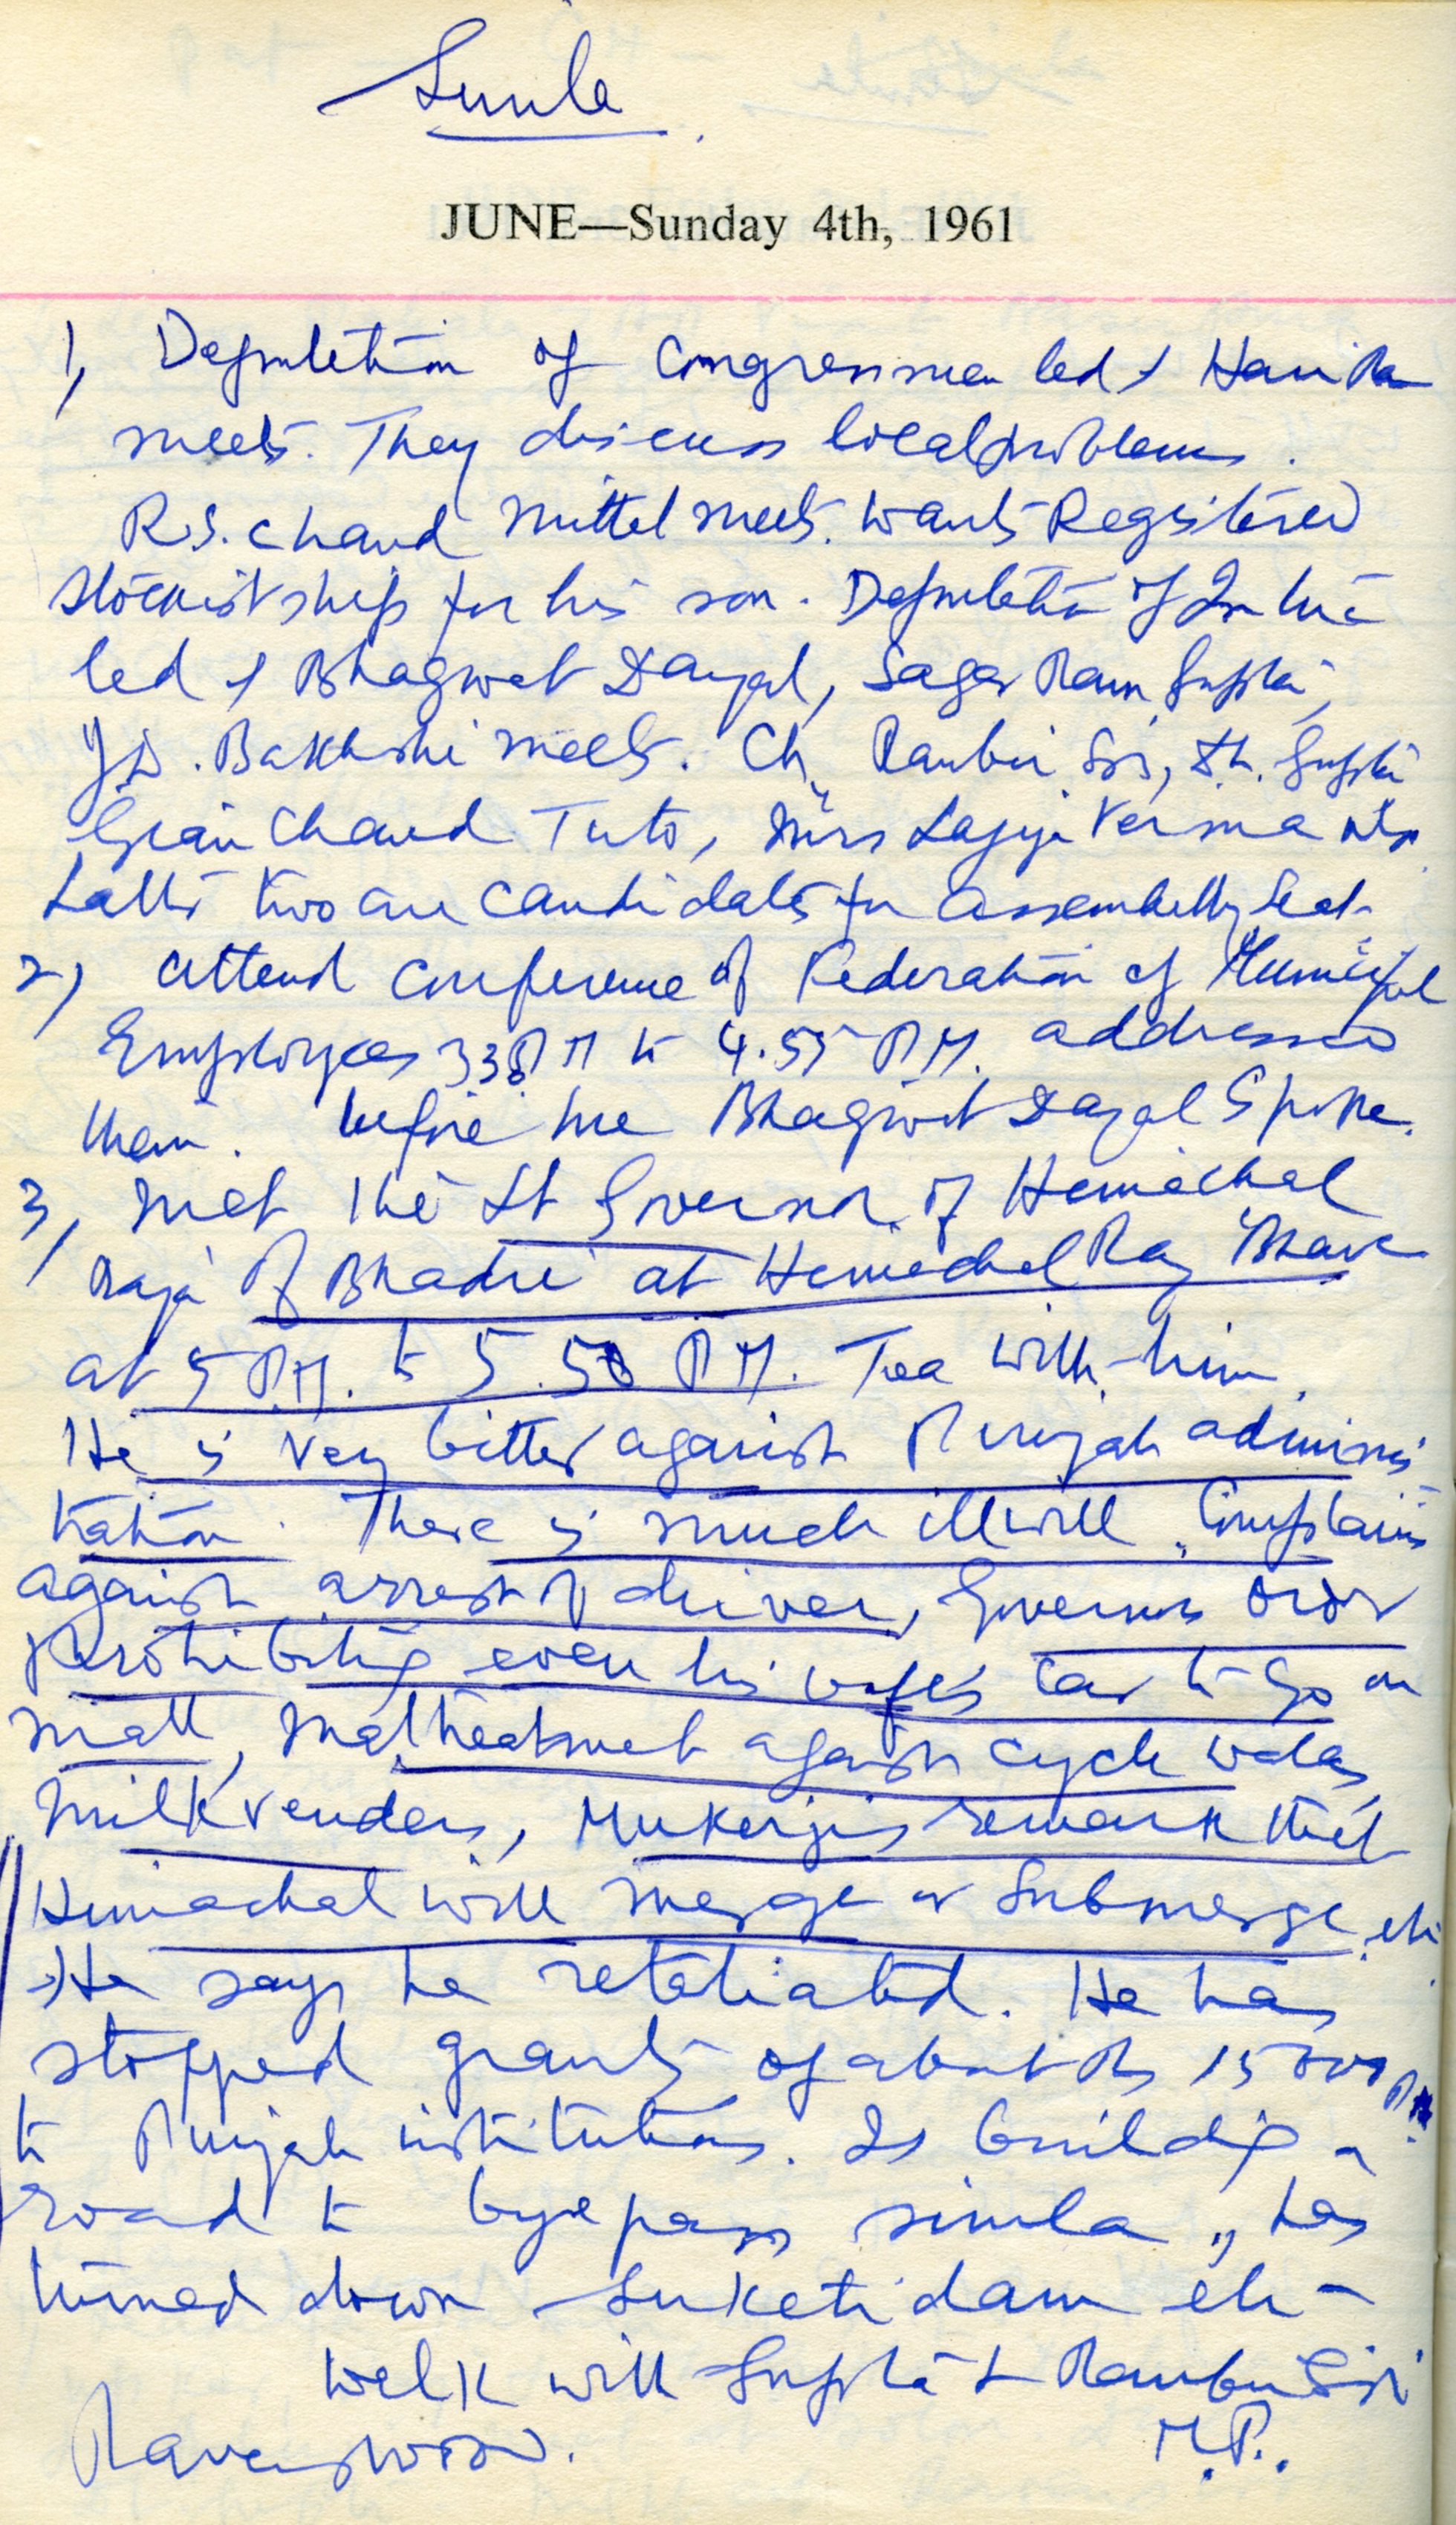 Simla
JUNE—Sunday 4th, 1961
1, Deputation of Congressmen led by Hari Ram
meets. They discuss local problems.
R.S. Chand Mittal meets. Wants Registered
stockist ship for his son. Deputation of
led by Bhagwat Dayal, Sagar Ram Gupta,
Y.D. Bakhshi meets. Ch. Ranbir Singh, Gupta
Gian Chand Tuto, Mrs Lajja Verma
Latter two are candidates for assembelly Seat.
2) attend conference of Federation of Municipal
Employees 3.30 PM to 4.55 PM. addresses
them. before me Bhagwat Dayal Spoke.
3, met the Lt Governor of Himachal
Raja of Bhadri at Himachal Raj Bhavan
at 5 P.M. to 5.50 P.M. Tea with him.
He is very bitter against Punjab adminis-
tration. There is much illwill. Complains
against arrest of driver, Governors order
Prohibiting even his wife's car to go on
mall, maltreatment against cycle walas,
Milk venders, Mukerjis remark that
Himachal will merge or submerge etc.
He says he retaliated. He has
stopped grants of about Rs 15000
to Punjab institutions. Is building a
road to byepass simla, has
turned down Suketi dam etc-
Walk with Gupta & Ranbir Singh
Ravenswood. M.P.